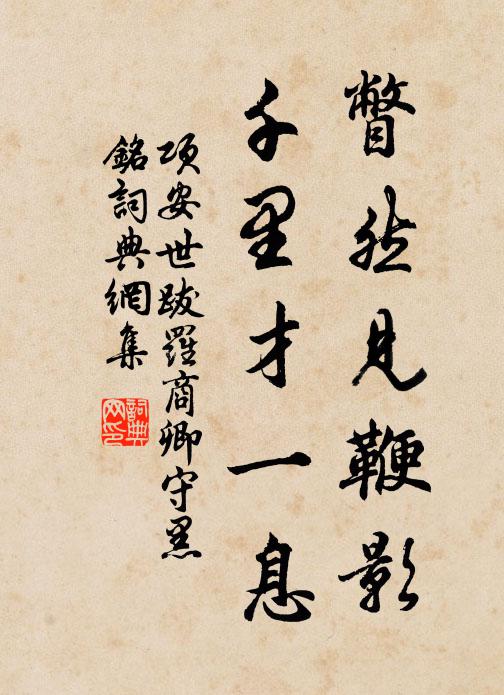 瞥然見鞭影
千里才一息
項安世跋羅商卿守黑
銘詞典網集
詞典
网印